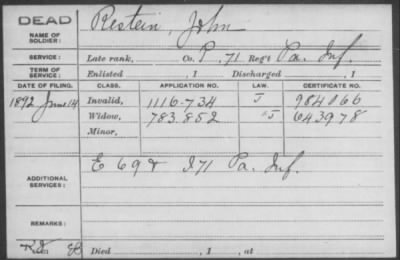 DEAD
NAME OF SOLDIER: Restein, John
SERVICE: Late rank, Co. P, 71 Reg't Pa. Inf.
TERM OF SERVICE: Enlisted , 1 Discharged , 1
DATE OF FILING. CLASS. APPLICATION NO. LAW. CERTIFICATE NO.
1892 June 14 Invalid, 1116.734 J 984066
Widow, 783.852 J 643978
Minor,
ADDITIONAL SERVICES: E 69 & I 71 Pa. Inf.
REMARKS:
Died , 1 , at